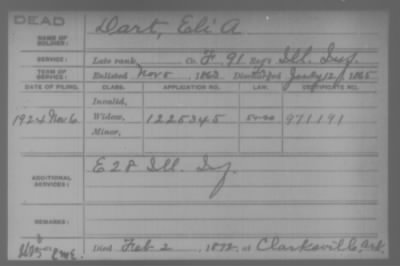 DEAD
NAME OF SOLDIER: Dart, Eli A
SERVICE: Late rank, Co. F, 91 Reg't Ill. Inf.
TERM OF SERVICE: Enlisted Nov 5, 1863 Discharged July 12, 1865
DATE OF FILING. CLASS. APPLICATION NO. LAW. CERTIFICATE NO.
Invalid,
1924 Nov 6 Widow, 1225345 971191
Minor,
ADDITIONAL SERVICES: E 28 Ill. Inf.
REMARKS:
Died Feb 2, 1892, at Clarksville, Ark.